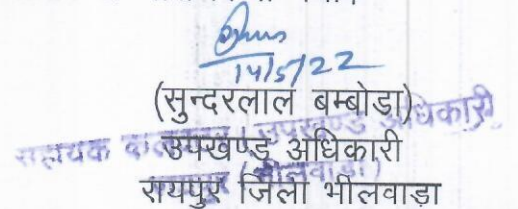 14/5/22
(सुन्दरलाल बम्बोडा)
उपखण्ड अधिकारी
रायपुर जिला भीलवाड़ा
सहायक कलेक्टर / उपखण्ड अधिकारी
रायपुर (भीलवाड़ा)